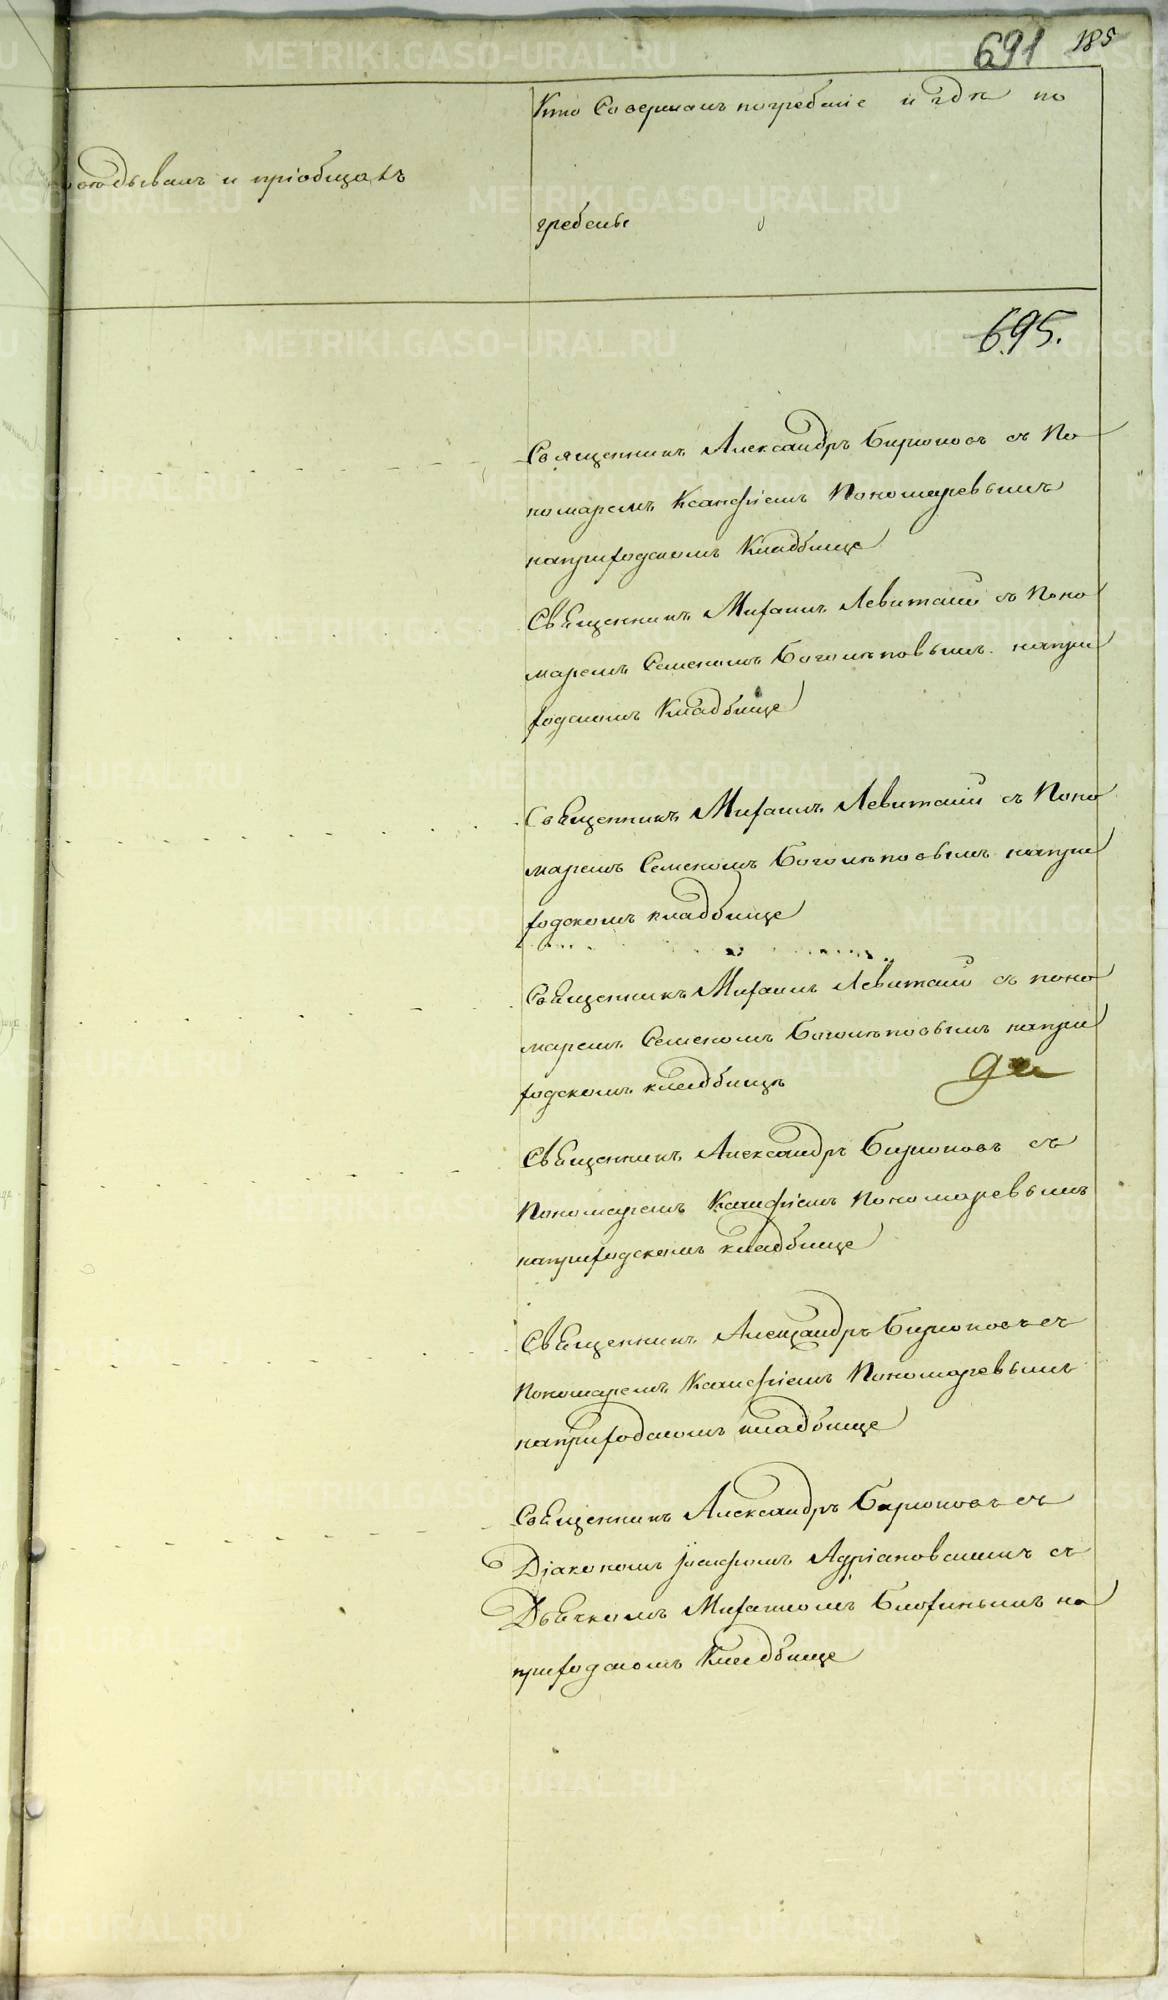 691 185
Кто Совершалъ погребеніе и гдѣ по
повѣдывалъ и пріобщалъ
гребены
695.
Священникъ Александръ Бирюковъ съ По
номаремъ Ксанфіемъ Пономаревымъ
наприходскомъ Кладбище
Священникъ Михаилъ Левитскій съ Поно
маремъ Семеномъ Боголѣповымъ напри
ходскомъ Кладбище
Священникъ Михаилъ Левитскій съ Поно
маремъ Семеномъ Боголѣповымъ напри
ходскомъ кладбище
Священникъ Михаилъ Левитскій съ поно
маремъ Семеномъ Боголѣповымъ напри
ходскомъ кладбищѣ
Священникъ Александръ Бирюковъ съ
Пономаремъ Ксанфіемъ Пономаревымъ
наприходскомъ кладбище
Священникъ Александръ Бирюковъ съ
Пономаремъ Ксанфіемъ Пономаревымъ
наприходскомъ кладбище
Священникъ Александръ Бирюковъ съ
Діакономъ Іосифомъ Адріановскимъ съ
Дьячкомъ Михаиломъ Блохинымъ на
приходскомъ Кладбище